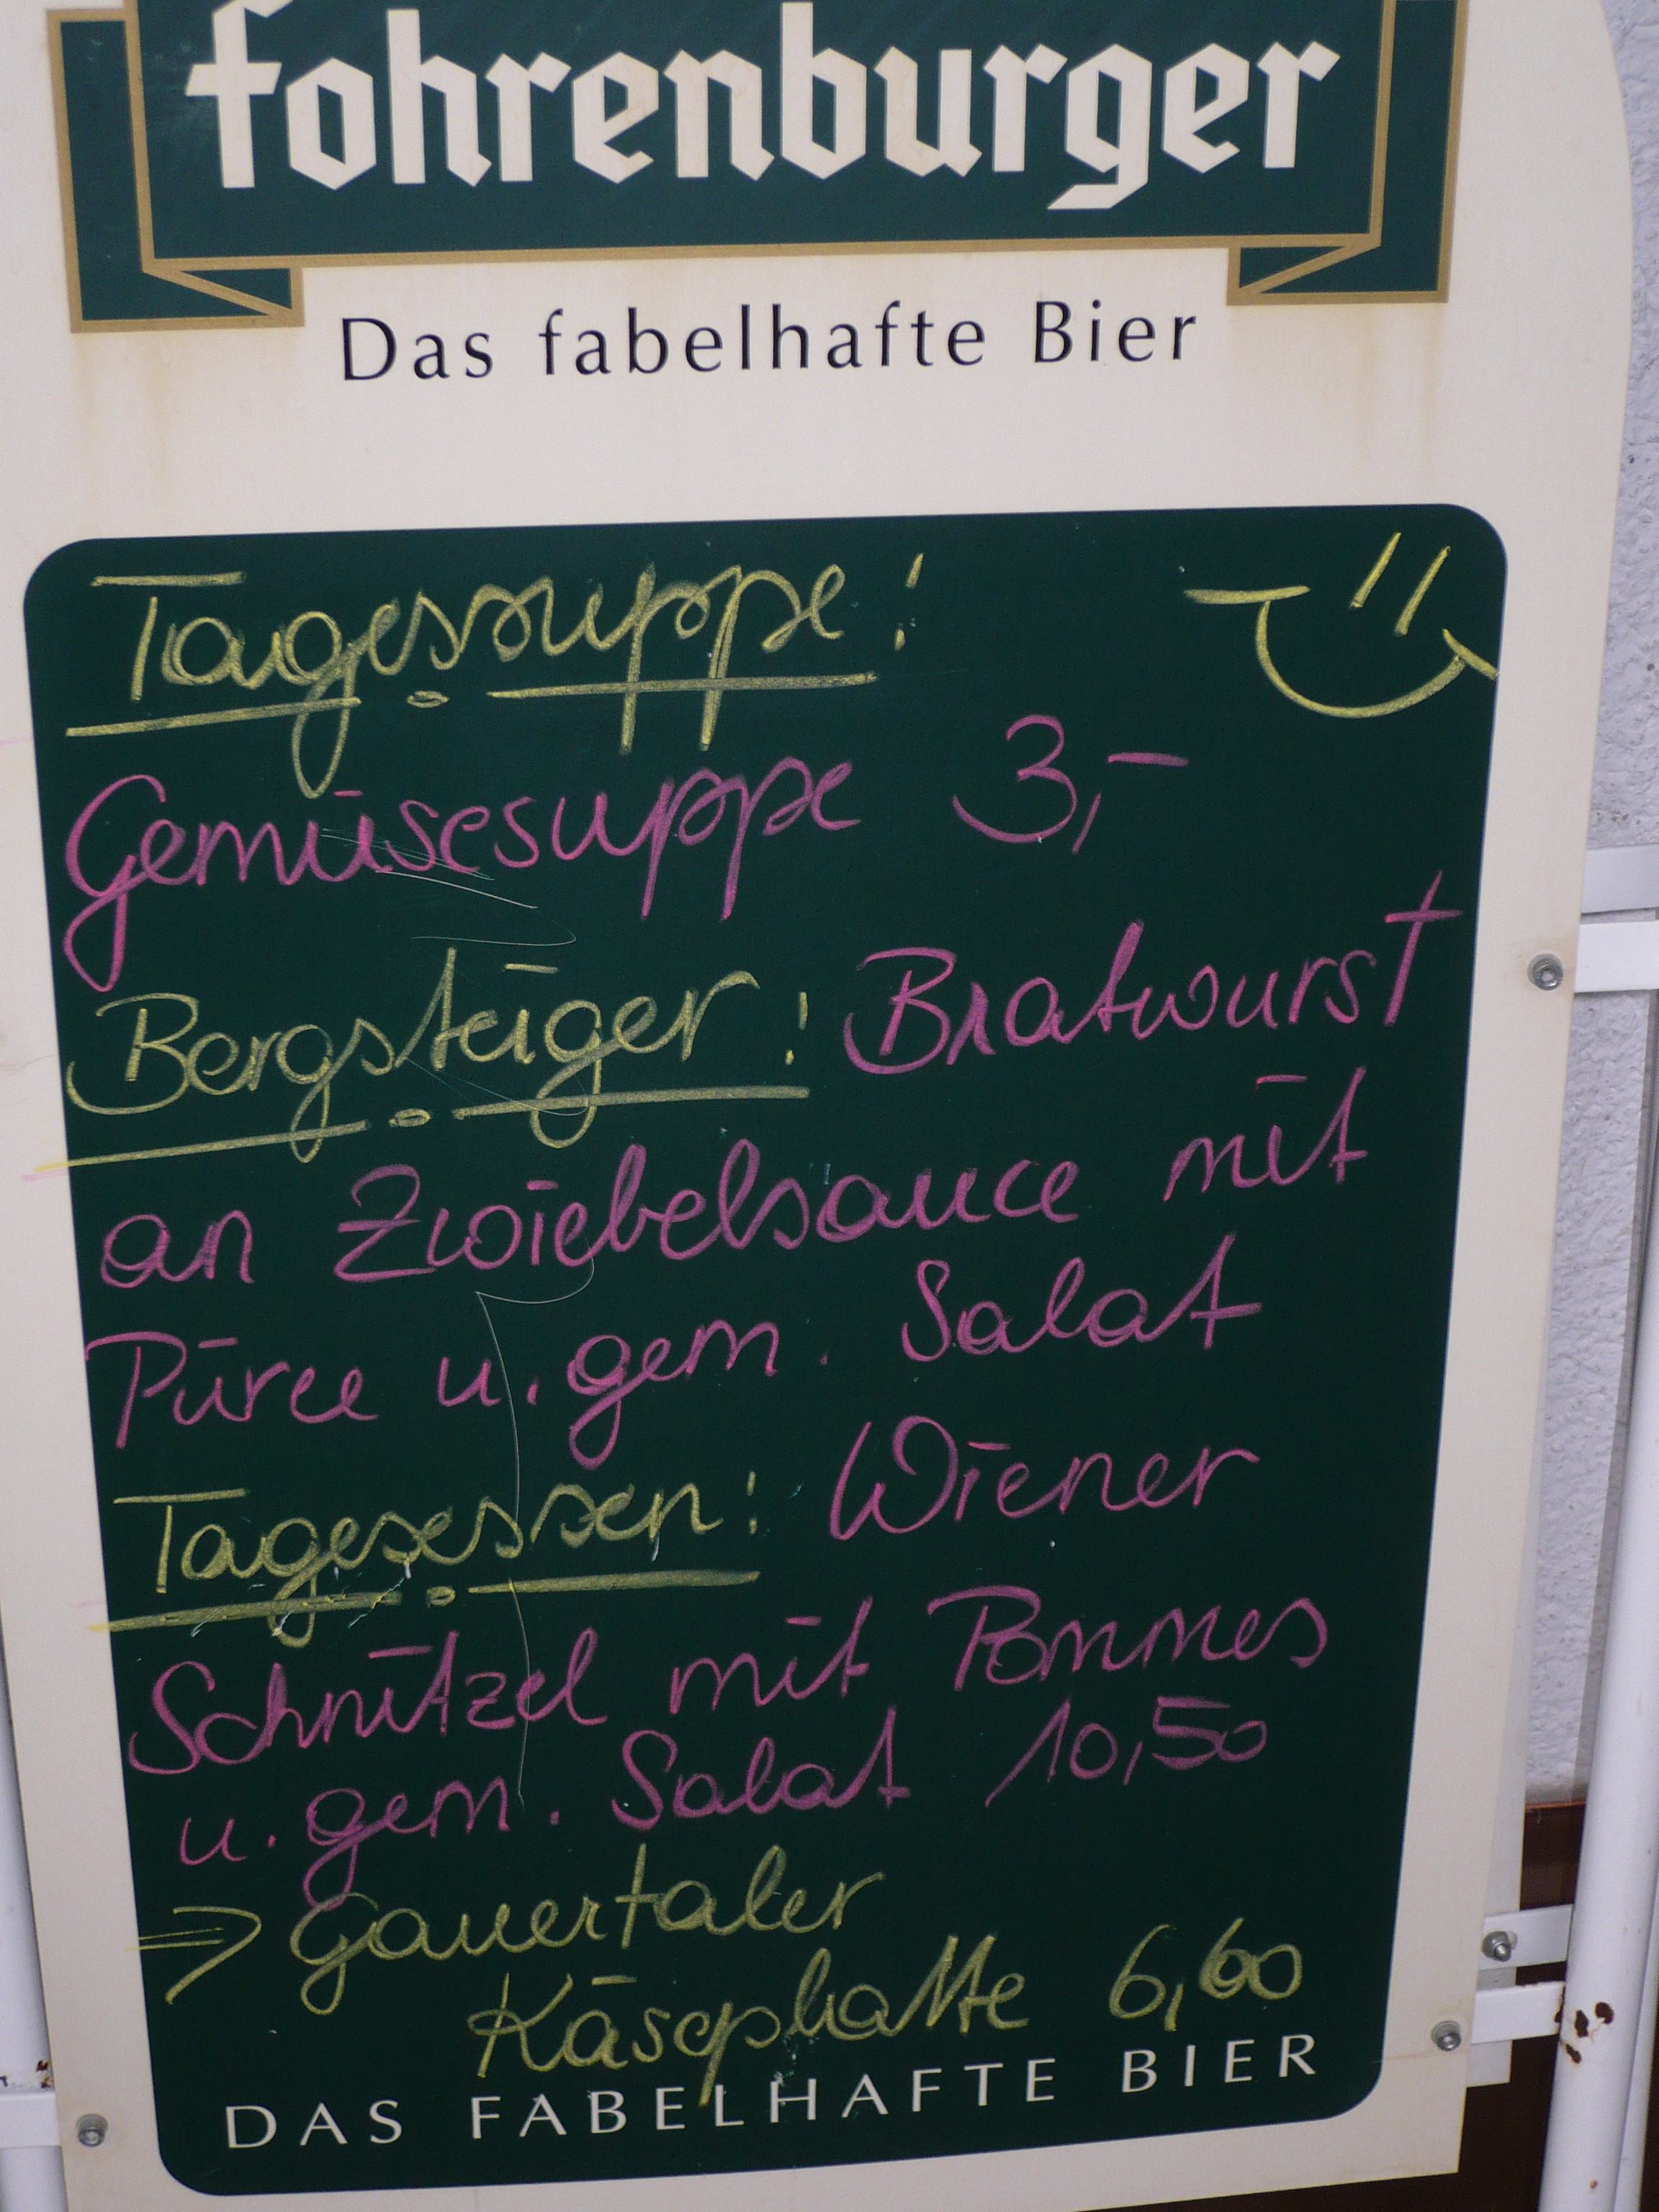 fohrenburger
Das fabelhafte Bier
Tagessuppe!
Gemüsesuppe 3,-
Bergsteiger! Bratwurst
an Zwiebelsauce mit
Püree u. gem. Salat
Tagesessen! Wiener
Schnitzel mit Pommes
u. gem. Salat 10,50
⇒ Gauertaler
Käseplatte 6,60
DAS FABELHAFTE BIER